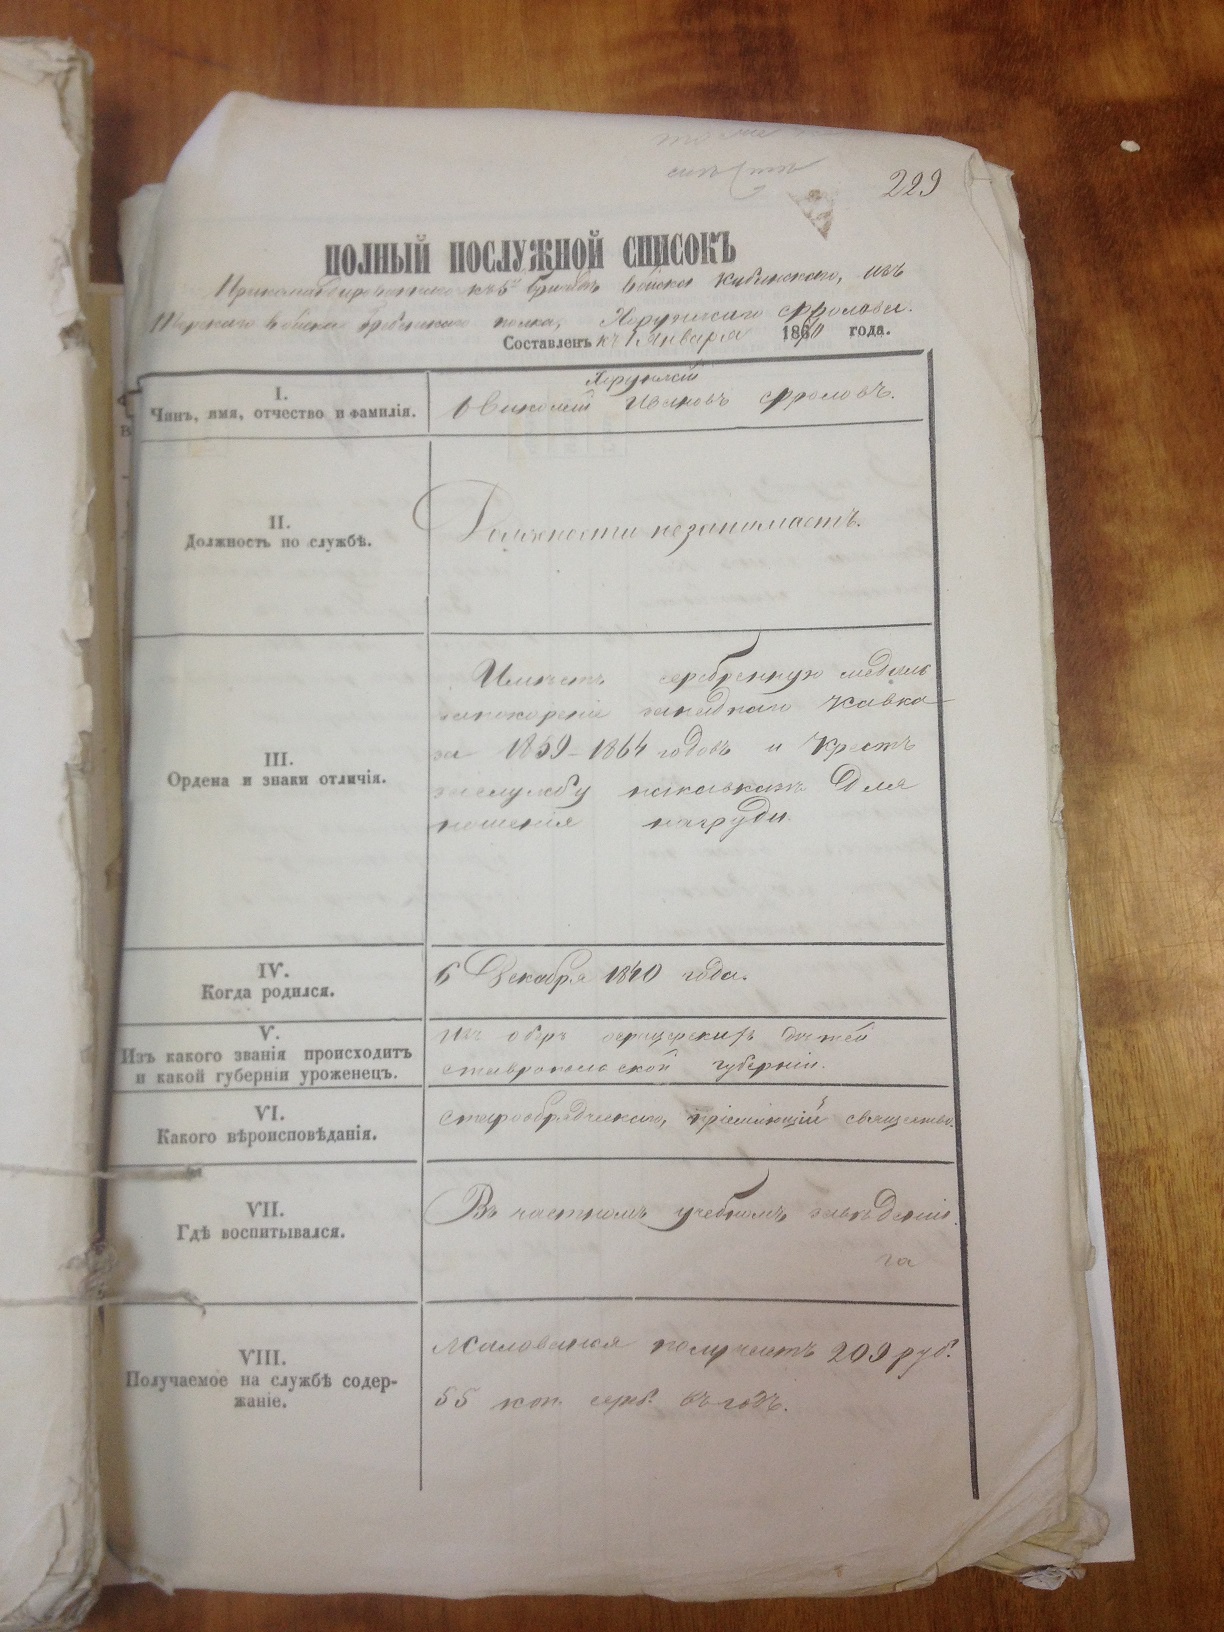 229
ПОЛНЫЙ ПОСЛУЖНОЙ СПИСОКЪ
Прикомандированнаго къ 5й бригадѣ войска Кубанскаго, изъ
Терскаго войска Гребенскаго полка, Хорунжаго Фролова.
Составленъ къ 1 Января 1870 года.
I.
Чинъ, имя, отчество и фамилія.
Хорунжій
Ивановъ Фроловъ.
II.
Должность по службѣ.
Должности незанимаетъ.
III.
Ордена и знаки отличія.
Имѣетъ серебренную медаль
запокореніе западнаго Кавка
за 1859-1864 годовъ и Крестъ
заслужбу накавказѣ Для
ношенія нагруди.
IV.
Когда родился.
6 Декабря 1840 года.
V.
Изъ какого званія происходитъ
и какой губерніи уроженецъ.
Изъ оберъ офицерскихъ дѣтей
ставропольской губерніи.
VI.
Какого вѣроисповѣданія.
старообрядческаго, пріемлющій священство.
VII.
Гдѣ воспитывался.
Въ частномъ учебномъ заведеніи.
VIII.
Получаемое на службѣ содер-
жаніе.
Жалованья получаетъ 209 руб.
55 коп. сереб. въ годъ.